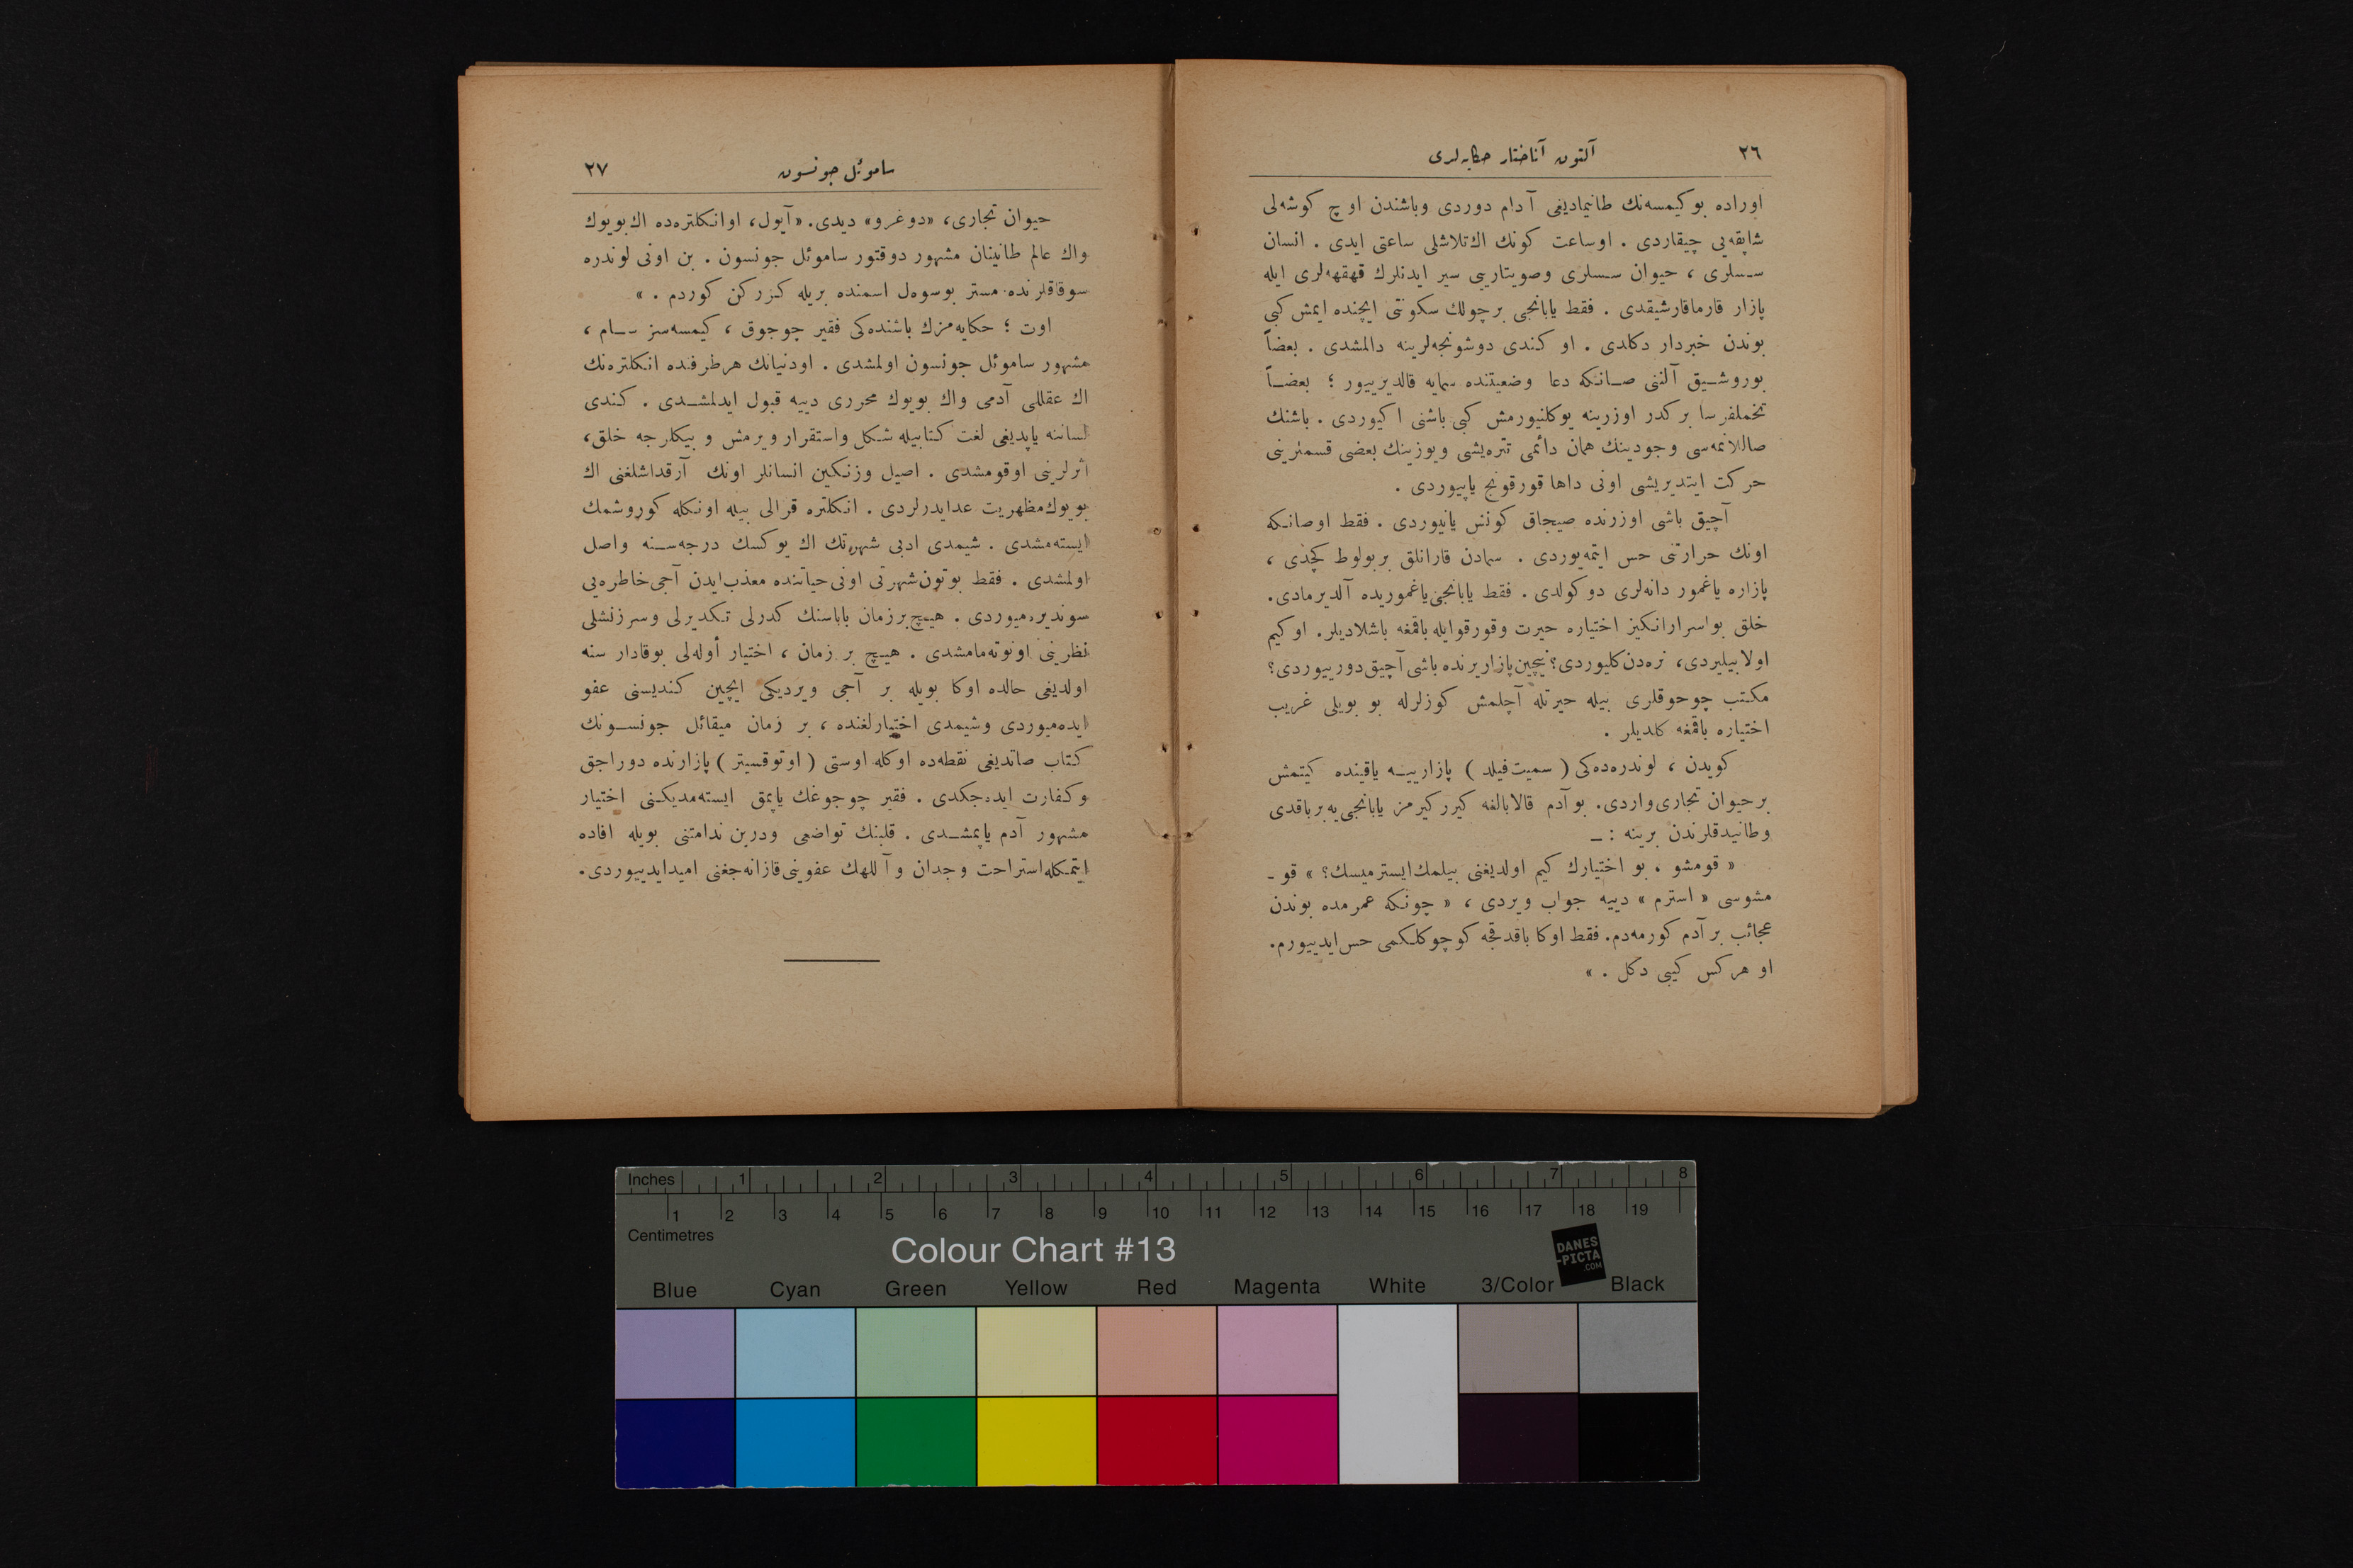 ٢٦
آلتون آناختار حكايه‌لری
اوراده بو كيمسه‌نك طانيماديغی آدام دوردی وباشندن اوچ كوشه‌لی
شاپقه‌يی چيقاردی . اوساعت كونك اك تلاشلی ساعتی ايدی . انسان
سسلری ، حيوان سسلری وصويتاريی سير ايدنلرك قهقهه‌لری ايله
پازار قارماقارشيقدی . فقط يابانجی برچولك سكونتی ايچنده ايمش كبی
بوندن خبردار دكلدی . او كندی دوشونجه‌لرينه دالمشدی . بعضاً
بوروشيق آلننی صانكه دعا وضعيتنده سمايه قالديرييور ؛ بعضاً
تحملفرسا بر كدر اوزرينه يوكلنيورمش كبی باشنی اكيوردی . باشنك
صاللانمه‌سی وجودينك همان دائمی تتره‌يشی ويوزينك بعضی قسملرينی
حركت ايتديريشی اونی داها قورقونج ياپيوردی .
آچيق باشی اوزرنده صيجاق كونش يانيوردی . فقط اوصانكه
اونك حرارتنی حس ايتمه‌يوردی . سمادن قارانلق بربولوط كچدی ،
پازاره ياغمور دانه‌لری دوكولدی . فقط يابانجی ياغموريده آلديرمادی.
خلق بواسرارانكيز اختياره حيرت وقورقوايله باقمغه باشلاديلر. اوكيم
اولابيليردی، نره‌دن كليوردی؟ نيچين پازار يرنده باشی آچيق دورييوردی؟
مكتب چوجوقلری بيله حيرتله آچلمش كوزلرله بو بويلی غريب
اختياره باقمغه كلديلر .
كويدن ، لوندره‌ده‌كی ( سميت‌فيلد ) پازاريينه ياقينده كيتمش
برحيوان تجاری واردی. بو آدم قالابالغه كيرر كيرمز يابانجی‌يه برباقدی
وطانيدقلرندن برينه : ـ
« قومشو . بو اختيارك كيم اولديغنی بيلمك ايسترميسك؟ » قو -
مشوسی « استرم » دييه جواب ويردی ، « چونكه عمرمده بوندن
عجائب بر آدم كورمه‌دم. فقط اوكا باقدقجه كوچوكلكمی حس ايدييورم.
او هركس كيبی دكل . »
ساموئل جونسون
٢٧
حيوان تجاری، «دوغرو» ديدی. «آيول، اوانكلتره‌ده اك بويوك
واك عالم طانينان مشهور دوقتور ساموئل جونسون . بن اونی لوندره
سوقاقلرنده مستر بوسوه‌ل اسمنده بريله كزركن كوردم . »
اوت ؛ حكايه‌مزك باشنده‌كی فقير چوجوق ، كيمسه‌سز سام ،
مشهور ساموئل جونسون اولمشدی . اودنيانك هرطرفنده انكلتره‌نك
اك عقللی آدمی واك بويوك محرری دييه قبول ايدلمشدی . كندی
لساننه ياپديغی لغت كتابيله شكل واستقرار ويرمش و بيكلرجه خلق،
اثرلرينی اوقومشدی . اصيل وزنكين انسانلر اونك آرقداشلغنی اك
بويوك مظهريت عدايدرلردی . انكلتره قرالی بيله اونكله كوروشمك
ايسته‌مشدی . شيمدی ادبی شهرتك اك يوكسك درجه‌سنه واصل
اولمشدی . فقط بوتون شهرتی اونی حياتنده معذب ايدن آجی خاطره‌يی
سونديره‌ميوردی . هيچ برزمان باباسنك كدرلی تكديرلی وسرزنشلی
نظرينی اونوته‌مامشدی . هيچ بر زمان ، اختيار أوله‌لی بوقادار سنه
اولديغی حالده اوكا بويله بر آجی ويرديكی ايچين كنديسنی عفو
ايده‌ميوردی وشيمدی اختيارلغنده ، بر زمان ميقائل جونسونك
كتاب صاتديغی نقطه‌ده اوكله اوستی ( اوتوقسيتر ) پازارنده دوراجق
وكفارت ايده‌جكدی . فقير چوجوغك ياپمق ايسته‌مديكنی اختيار
مشهور آدم ياپمشدی . قلبنك تواضعی ودرين ندامتنی بويله افاده
ايتمكله استراحت وجدان و آللهك عفوينی قازانه‌جغنی اميدايدييوردی.
Inches 1 2 3 4 5 6 7 8
1 2 3 4 5 6 7 8 9 10 11 12 13 14 15 16 17 18 19
Centimetres
Colour Chart #13
DANES
-PICTA
.COM
Blue Cyan Green Yellow Red Magenta White 3/Color Black